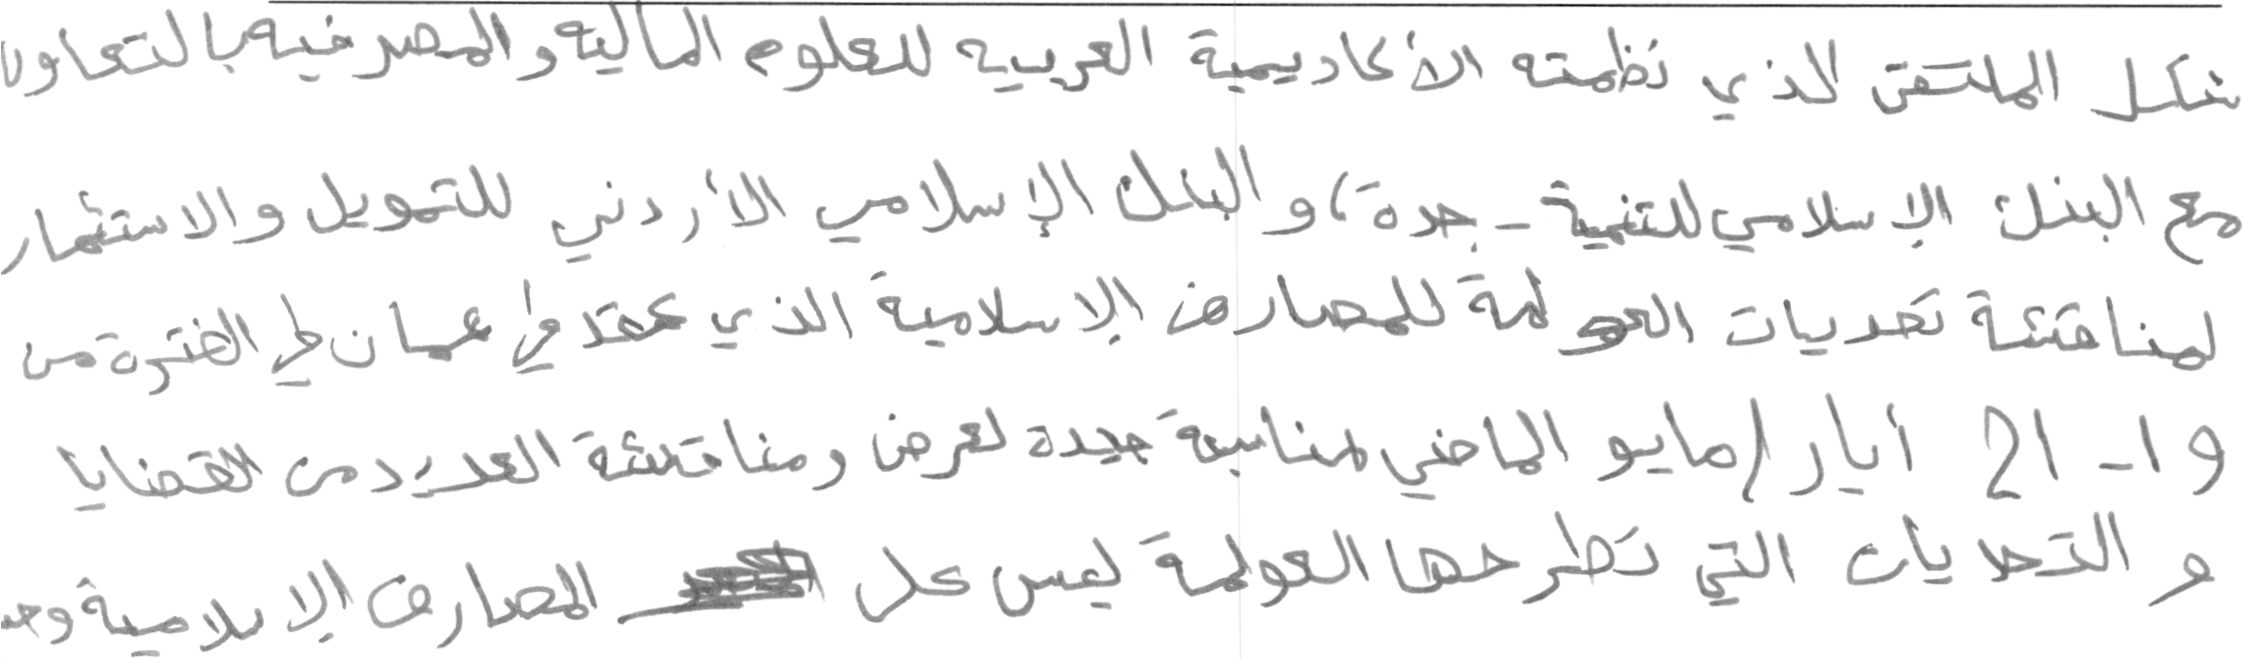 شكل الملتقى الذي نظمته الأكاديمية العربيه للعلوم الماليه والمصرفيه بالتعاون
مع البنك الإسلامي للتنمية - جدة، والبنك الإسلامي الأردني للتمويل والاستثمار
لمناقشة تحديات العولمة للمصارف الإسلامية الذي عقد في عمان في الفترة من
19 - 21 أيار/مايو الماضي لمناسبة جيده لعرض ومناقشة العديد من القضايا
والتحديات التي تطرحها العولمة ليس على المصارف الإسلامية